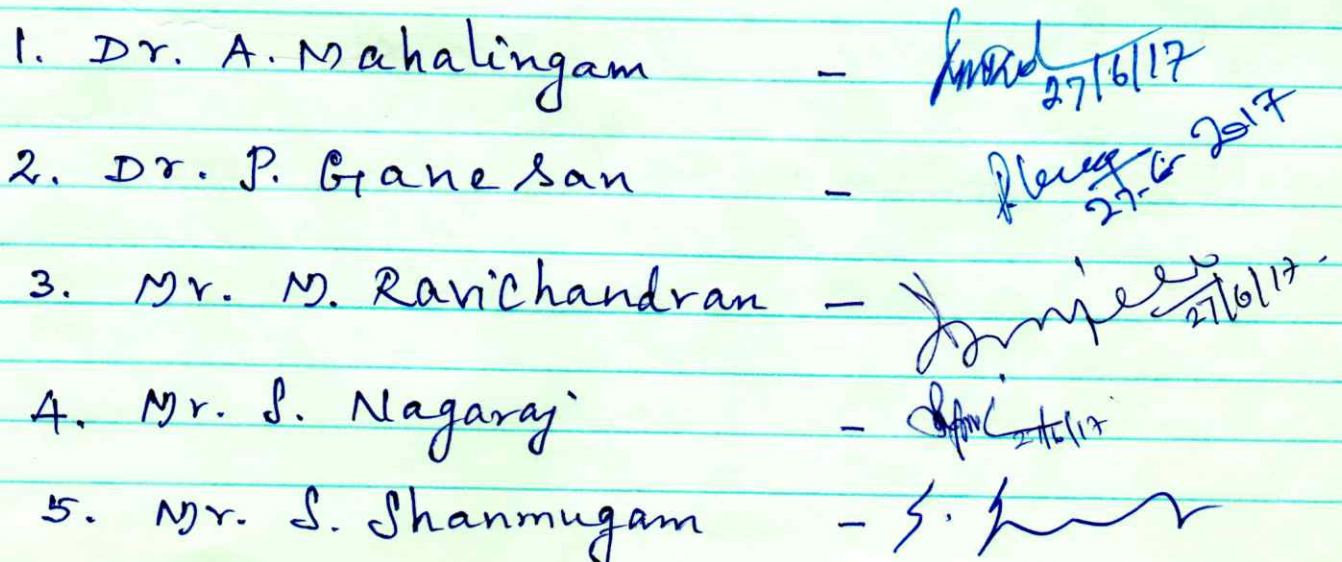 1. Dr. A. Mahalingam - 27/6/17
2. Dr. P. Ganesan - 27-6-2017
3. Mr. M. Ravichandran - 27/6/17
4. Mr. S. Nagaraj - 27/6/17
5. Mr. S. Shanmugam - S.